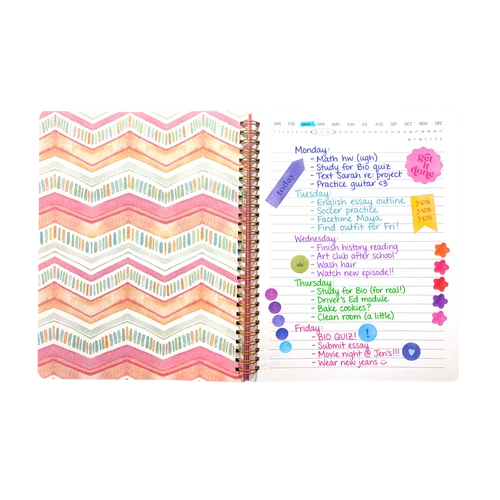 JAN FEB MAR APR MAY JUN JUL AUG SEP OCT NOV DEC
M T W T F S S
Monday:
- Math hw (ugh)
- Study for Bio quiz
- Text Sarah re: project
- Practice guitar <3
today
get it done
Tuesday:
- English essay outline
- Soccer practice
- Facetime Maya
- Find outfit for Fri!
yes
yes
yes
Wednesday:
- Finish history reading
- Art club after school
- Wash hair
- Watch new episode!!
Thursday:
- Study for Bio (for real!)
- Driver's Ed module
- Bake cookies?
- Clean room (a little)
Friday:
- BIO QUIZ!
!
- Submit essay
- Movie night @ Jen's!!!
- Wear new jeans